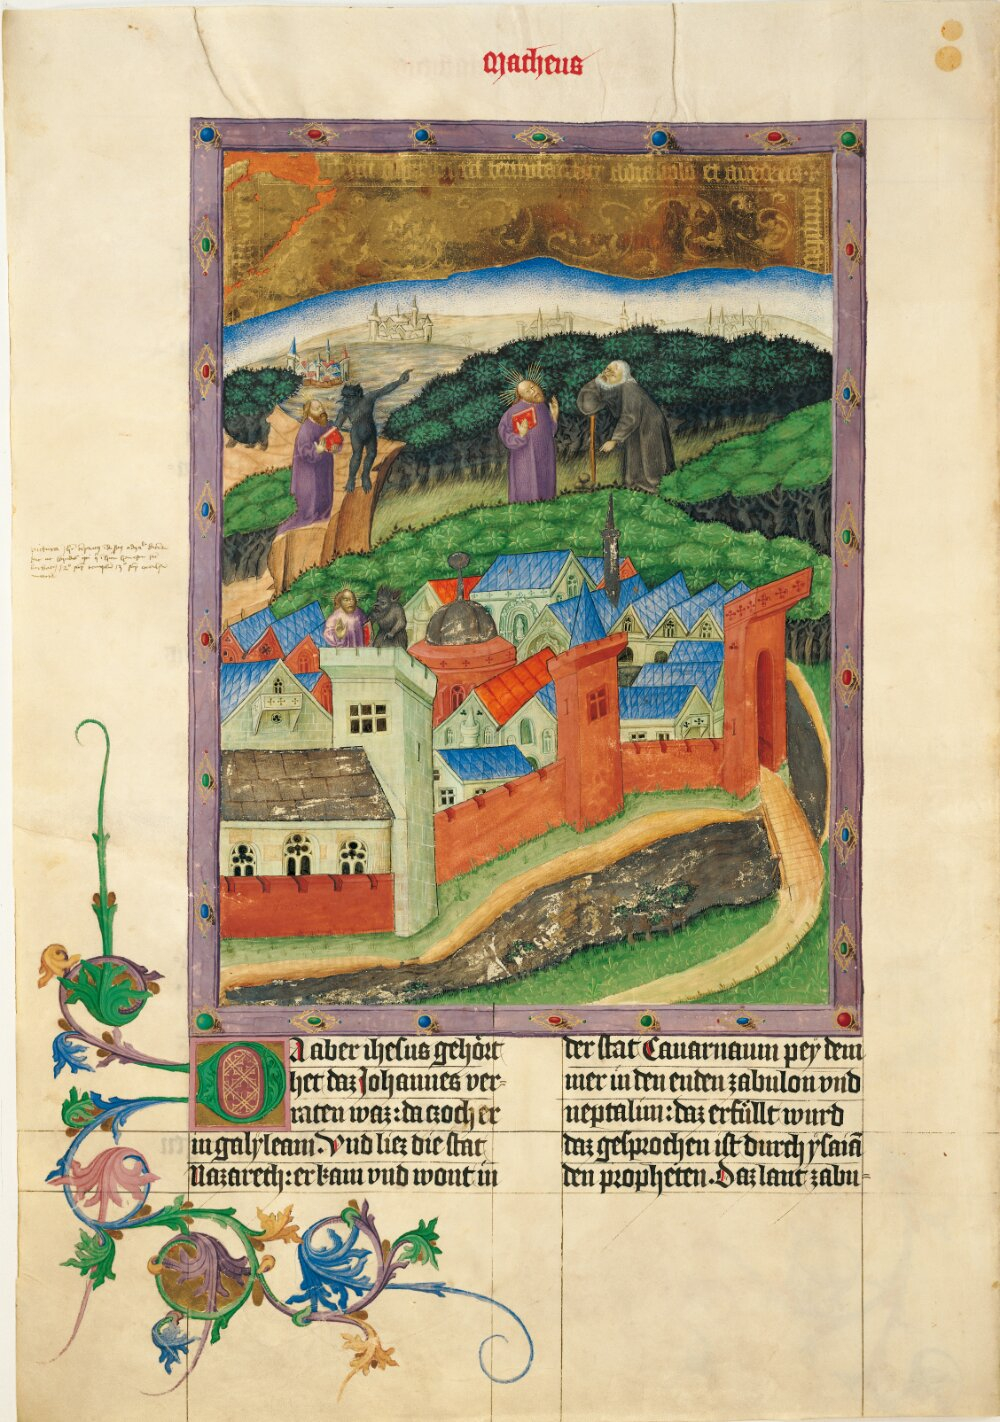 Matheus
temptaretur a dyabolo et
DA aber ihesus gehört
het daz Johannes ver-
raten waz: da czoch er
in galyleam. Vnd liez die stat
Nazareth: er kam vnd wont in
der stat Cauarnaum pey dem
mer in den enden zabulon vnd
neptalim: daz erfüllt wurd
daz gesprochen ist durch ysaiā
den propheten. Daz lant zabu-